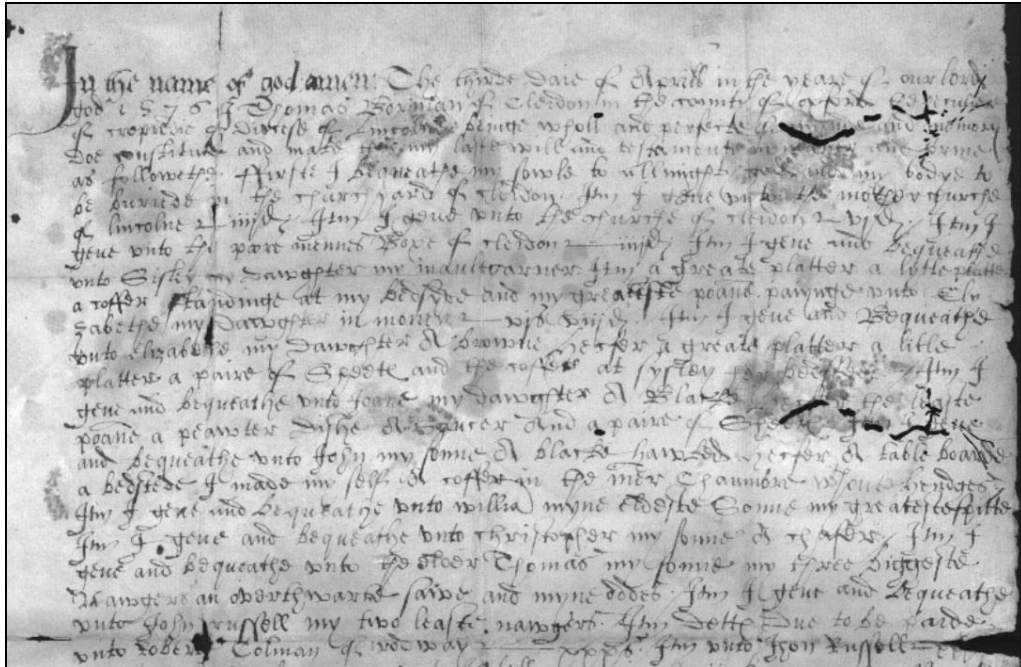 In the name of god amen. The thirde daie of Aprill in the yeare of our lord
god 1576 I Thomas Borman of Cleidon in the countie of oxford
of cropredie & diocese of Lincolne beinge wholl and perfecte and memory
doe constitute and make this my laste will and testamente in and forme
as followethe. ffirste I bequeathe my sowle to allmightie god and my bodye to
be buriede in the churchyard of cleidon. Itm I geve unto the motherchurche
of lincolne iiijd. Itm I geve unto the churche of cleidon vjd. Itm I
geve unto the pore mennes Boxe of cleidon iiijd Itm I geve and bequeathe
unto Sisley my dawghter my Itm a greate platter a lytle platter
a coffer standinge at my bedsyde and my greateste panne. payinge unto Ely
zabethe my Dawghter in money vjs viijd. Itm I geve and Bequeathe
unto Elizabethe my Dawghter A browne hecfer a greate platter a litle
platter a paire of Sheetes and the coffer at sysley Itm I
geve and bequeathe unto Joane my dawghter A Blacke the leaste
panne a peawter dishe A Sawcer And a paire of Sheetes Itm I geve
and bequeathe unto John my sonne A blacke hawked hecfer A table boarde
a bedstede I made my self A coffer in the Chaumbre hendges
Itm I geve and bequeathe unto willia myne eldeste Sonne my greateste
Itm I geve and bequeathe unto christopher my sonne A chafer. Itm I
geve and bequeathe unto the elder Thomas my sonne my three biggeste
Nawgers an overthwarte sawe and myne Itm I geve and Bequeathe
unto John russell my two leaste nawgers. Itm Dettes Due to be paide
unto Robert Colman of wodway xxxs. Itm unto Jhon Russell